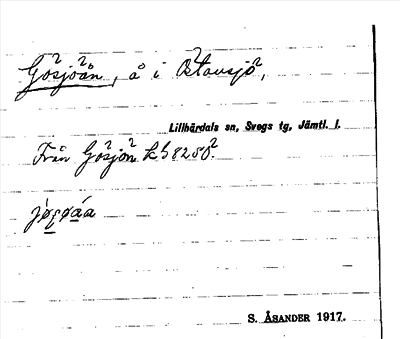 Gösjöån, å i Östansjö,
Lillhärdals sn, Svegs tg, Jämtl. l.
Från Gösjön k58250.
S. ÅSANDER 1917.